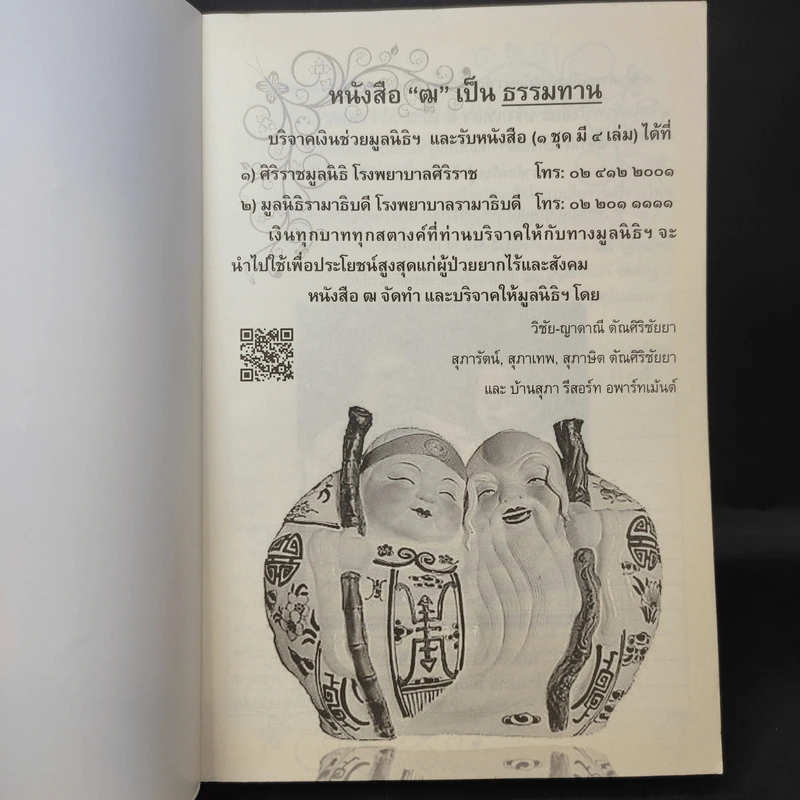 หนังสือ “ฒ” เป็น ธรรมทาน
บริจาคเงินช่วยมูลนิธิฯ และรับหนังสือ (๑ ชุด มี ๔ เล่ม) ได้ที่
๑) ศิริราชมูลนิธิ โรงพยาบาลศิริราช โทร: ๐๒ ๔๑๒ ๒๐๐๑
๒) มูลนิธิรามาธิบดี โรงพยาบาลรามาธิบดี โทร: ๐๒ ๒๐๑ ๑๑๑๑
เงินทุกบาททุกสตางค์ที่ท่านบริจาคให้กับทางมูลนิธิฯ จะ
นำไปใช้เพื่อประโยชน์สูงสุดแก่ผู้ป่วยยากไร้และสังคม
หนังสือ ฒ จัดทำ และบริจาคให้มูลนิธิฯ โดย
วิชัย-ญาดาณี ตัณศิริชัยยา
สุภารัตน์, สุภาเทพ, สุภาษิต ตัณศิริชัยยา
และ บ้านสุภา รีสอร์ท อพาร์ทเม้นต์